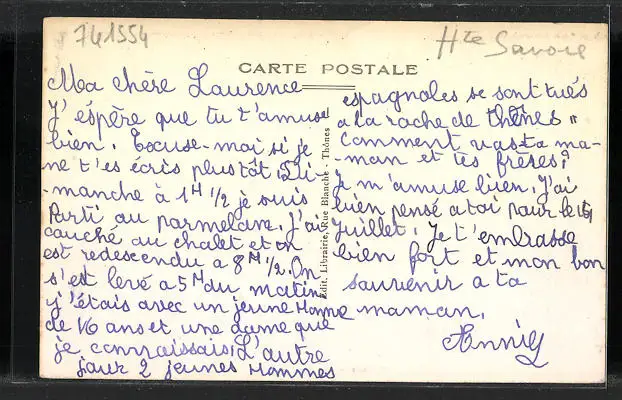 741554
Hte Savoie
CARTE POSTALE
Ma chère Laurence
J'éspère que tu t'amuse
bien. Excuse-moi si je
ne t'es écris plustôt. Di-
-manche à 1H 1/2 je suis
Parti au parmelan. J'ai
couché au chalet et on
est redescendu a 8H 1/2. On
s'est levé a 5H du matin
j'étais avec un jeune Homme
de 16 ans et une dame que
je connaissais. L'autre
jour 2 jeunes Hommes
Edit. Librairie, Rue Blanche - Thônes
espagnoles se sont tués
a la roche de thônes "
Comment vas ta ma-
-man et tes frères?
Je m'amuse bien. J'ai
bien pensé a toi pour le
juillet. Je t'embrasse
bien fort et mon bon
souvenir a ta
maman.
Anniy